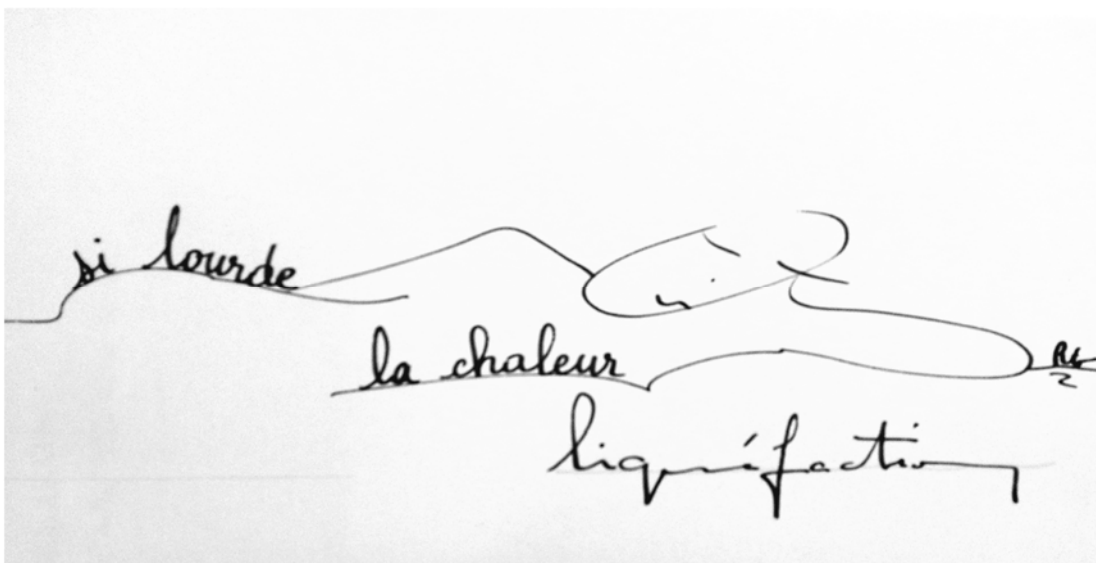 si lourde
la chaleur
liquéfaction